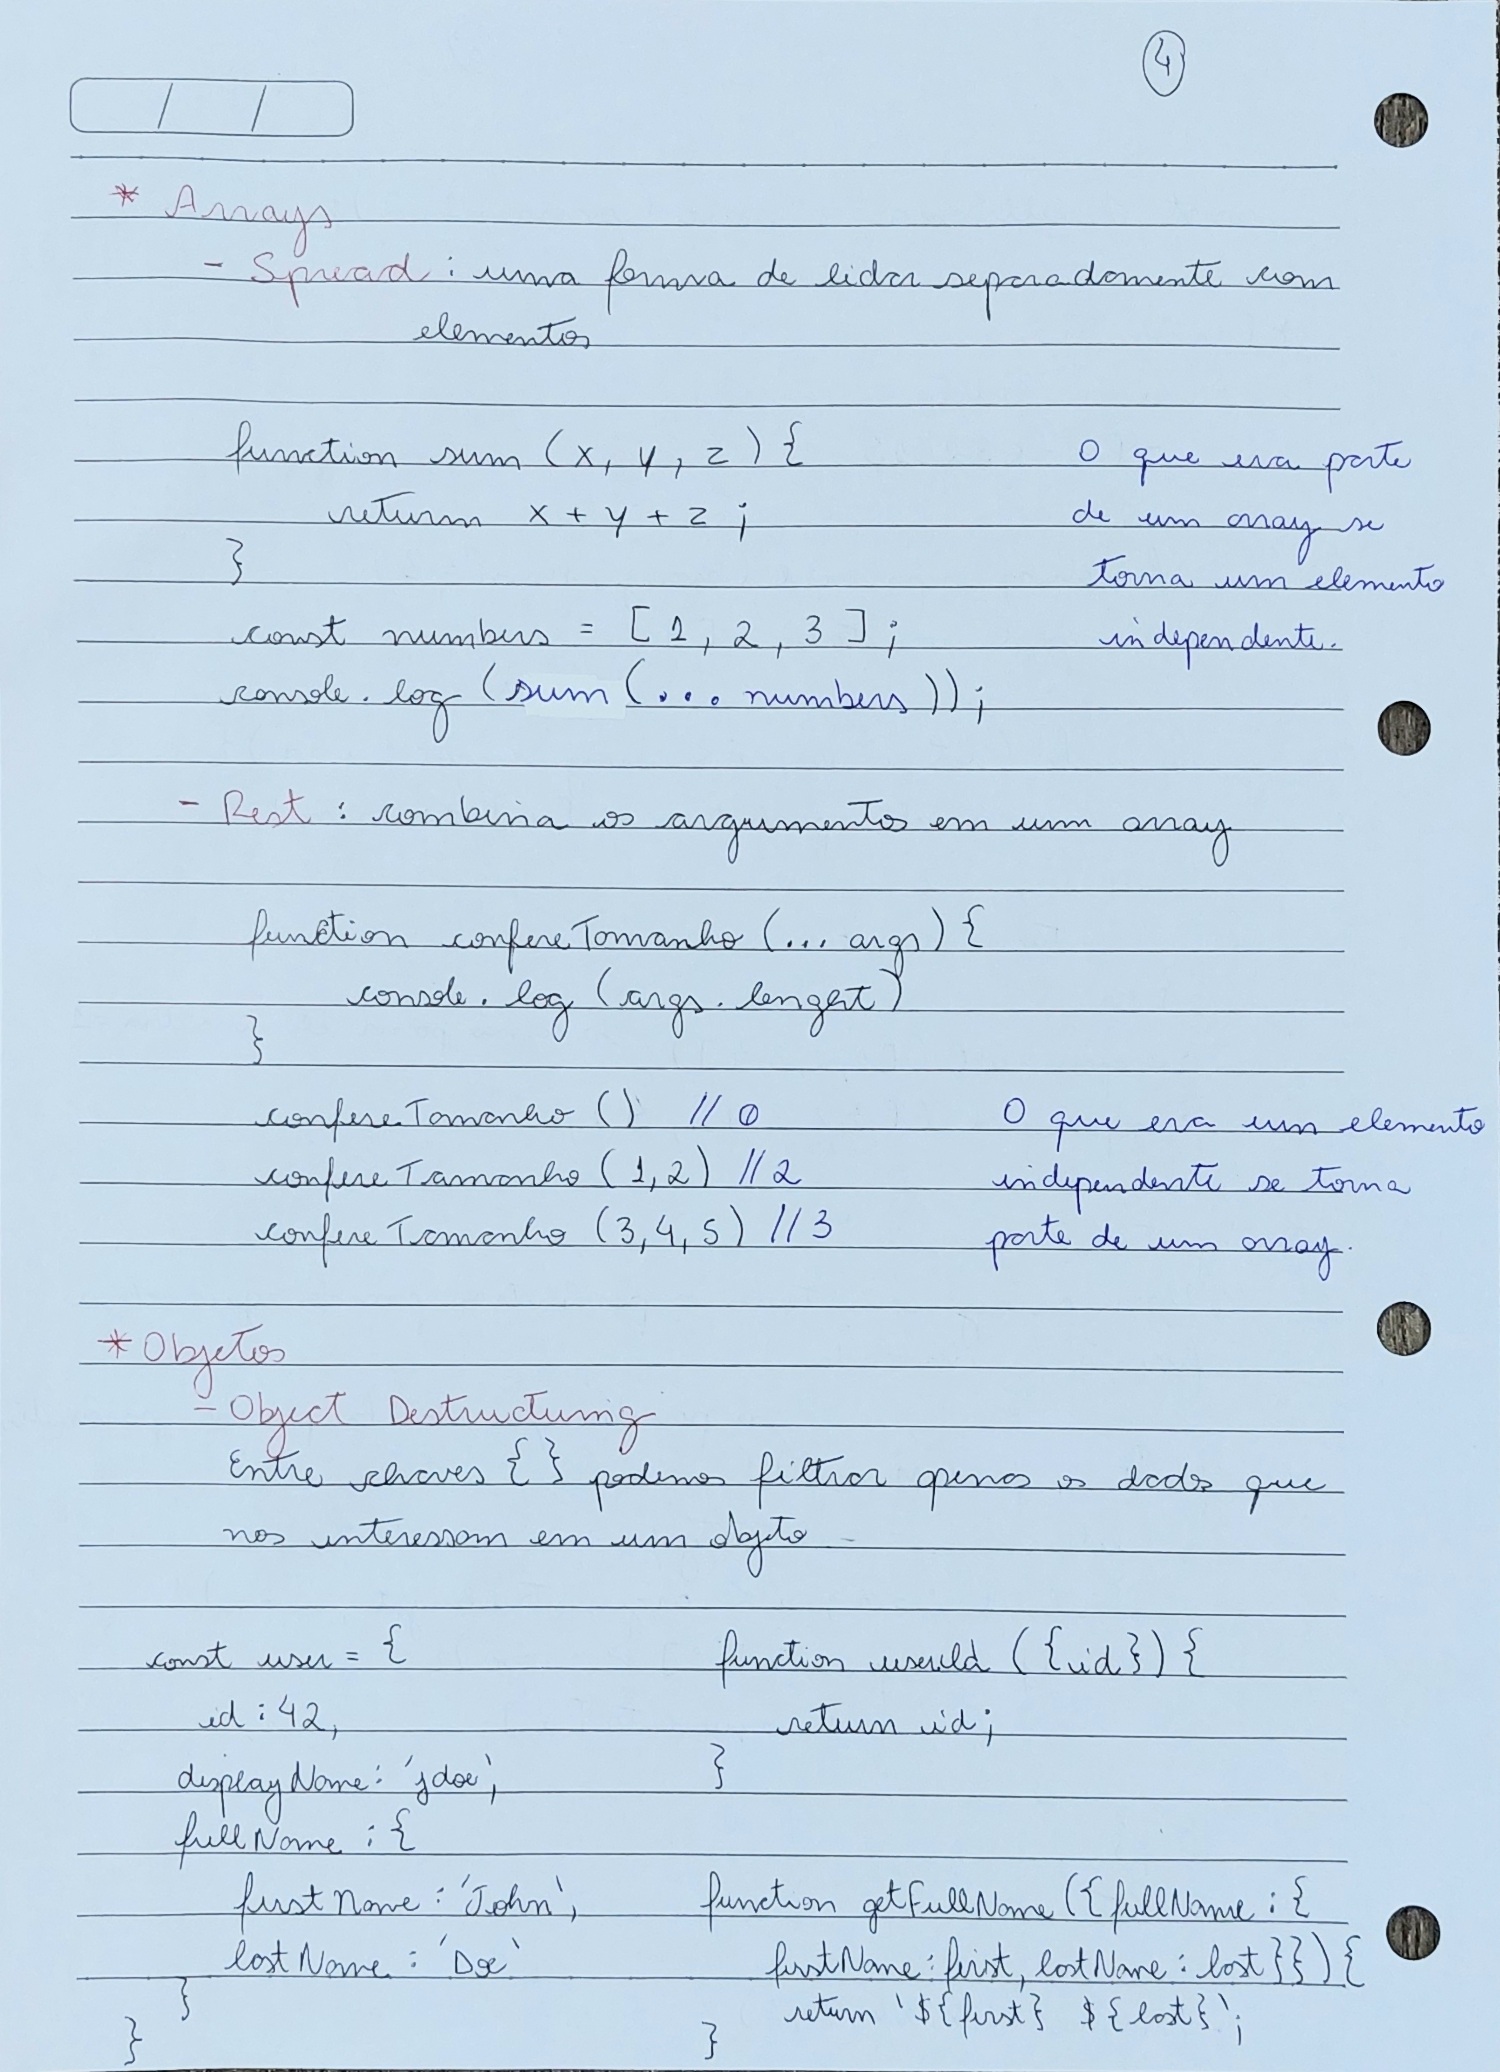 4
/ /
* Arrays
- Spread : uma forma de lidar separadamente com
elementos
function sum (x, y, z) {
return x + y + z ;
}
const numbers = [ 1, 2, 3 ] ;
console.log (sum (... numbers)) ;
O que era parte
de um array se
torna um elemento
independente.
- Rest : combina os argumentos em um array
function confereTamanho (... args) {
console.log (args.lenght)
}
confereTamanho () // 0
confereTamanho (1,2) // 2
confereTamanho (3,4,5) // 3
O que era um elemento
independente se torna
parte de um array.
* Objetos
- Object Destructuring
Entre chaves { } podemos filtrar apenas os dados que
nos interessam em um objeto
const user = {
id : 42,
displayName : 'jdoe',
fullName : {
firstName : 'John',
lastName : 'Doe'
}
}
function userId ({id}) {
return id ;
}
function getFullName ({fullName : {
firstName : first, lastName : last}}) {
return `${first} ${last}` ;
}